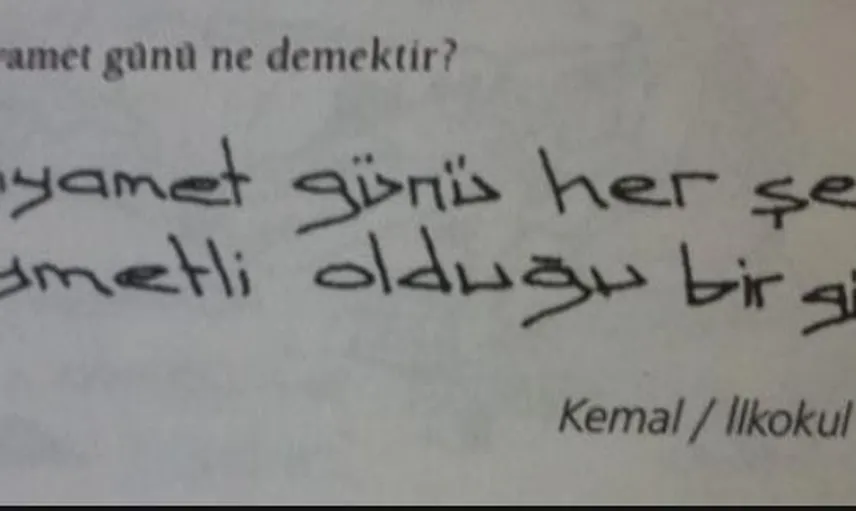 amet günü ne demektir?
yamet günü her şe
ymetli olduğu bir gü
Kemal / İlkokul